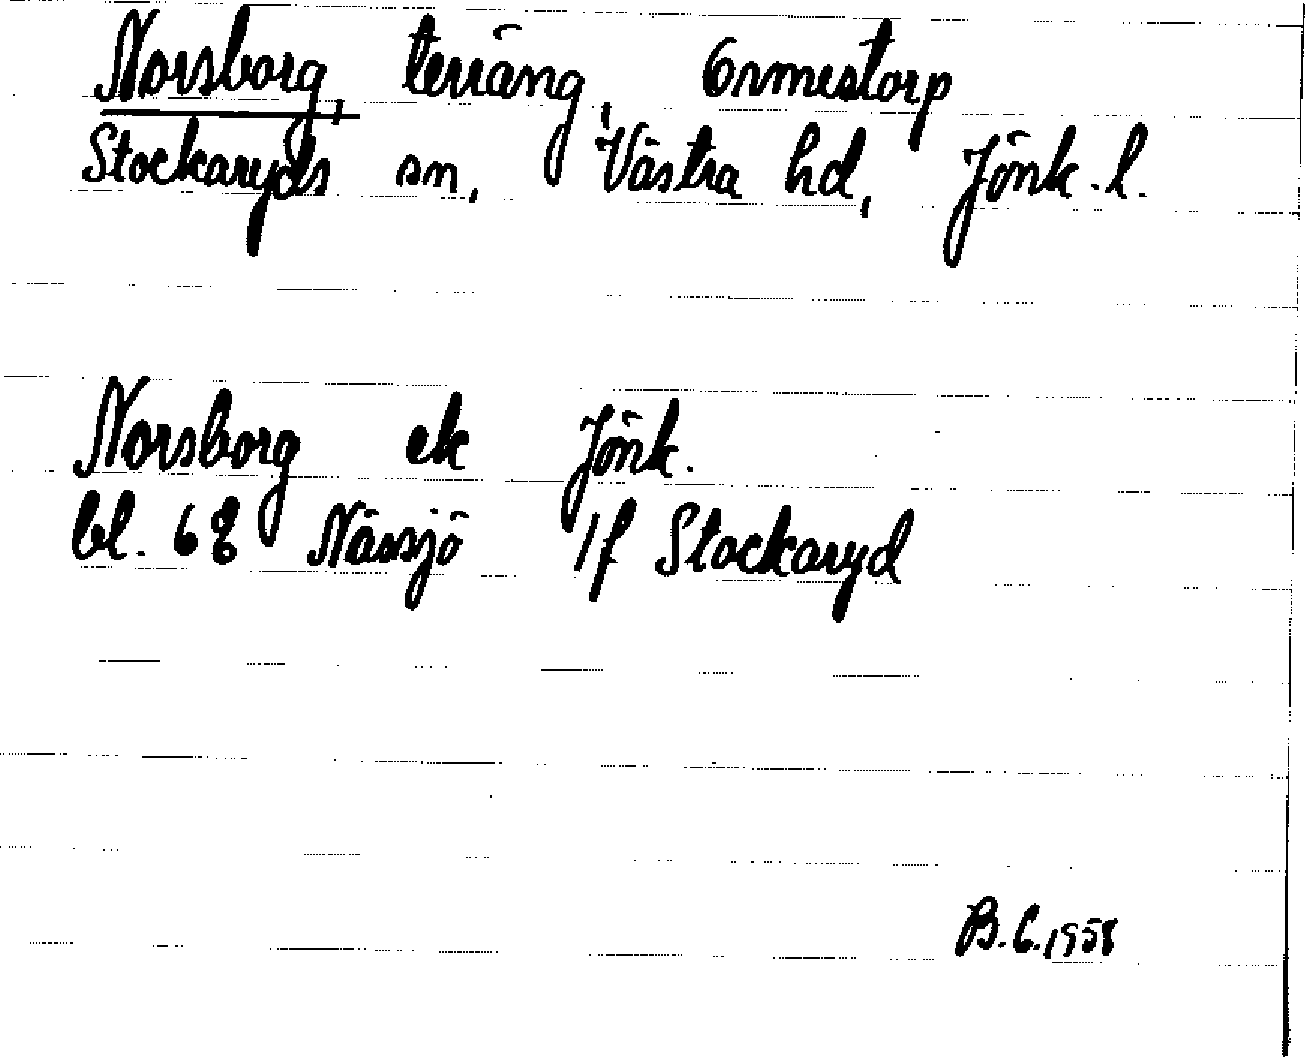 Norsborg, terräng, Ormestorp
Stockaryds sn, Västra hd, Jönk. l.
Norsborg ek Jönk.
bl. 68 Nässjö 1f Stockaryd
B.C. 1958